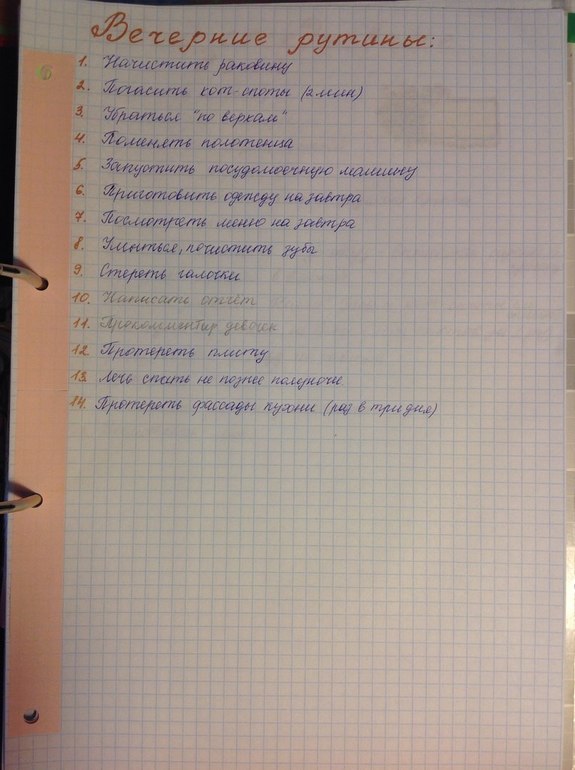 Вечерние рутины:
1. Начистить раковину
2. Погасить хот-споты (2 мин)
3. Убраться "по верхам"
4. Поменять полотенца
5. Запустить посудомоечную машину
6. Приготовить одежду на завтра
7. Посмотреть меню на завтра
8. Умыться, почистить зубы
9. Стереть галочки
10. Написать отчёт
11. Прокомментир девочек
12. Протереть плиту
13. Лечь спать не позднее полуночи
14. Протереть фассады кухни (раз в три дня)